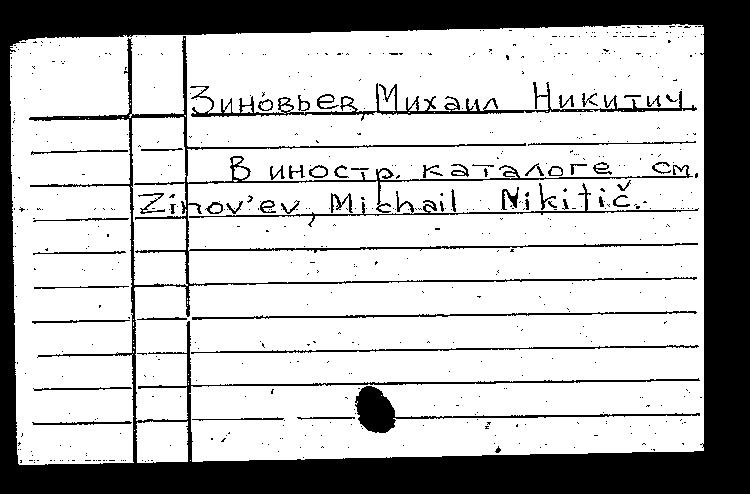 Зиновьев, Михаил Никитич.
В иностр. каталоге см.
Zinov'ev, Michail Nikitič.